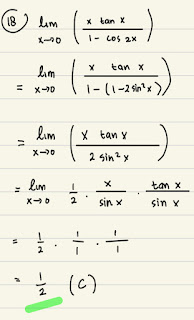 18 lim x→0 ( x tan x / 1 - cos 2x )
= lim x→0 ( x tan x / 1 - (1 - 2 sin² x) )
= lim x→0 ( x tan x / 2 sin² x )
= lim x→0 1/2 · x / sin x · tan x / sin x
= 1/2 · 1/1 · 1/1
= 1/2 (C)